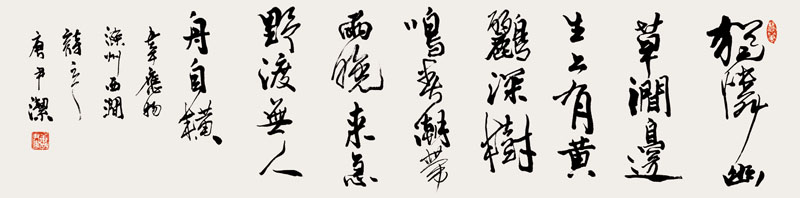 獨憐幽
草澗邊
生上有黃
鸝深樹
鳴春潮帶
雨晚来急
野渡無人
舟自橫
韋應物
滁州西澗
詩之一
唐尹潔